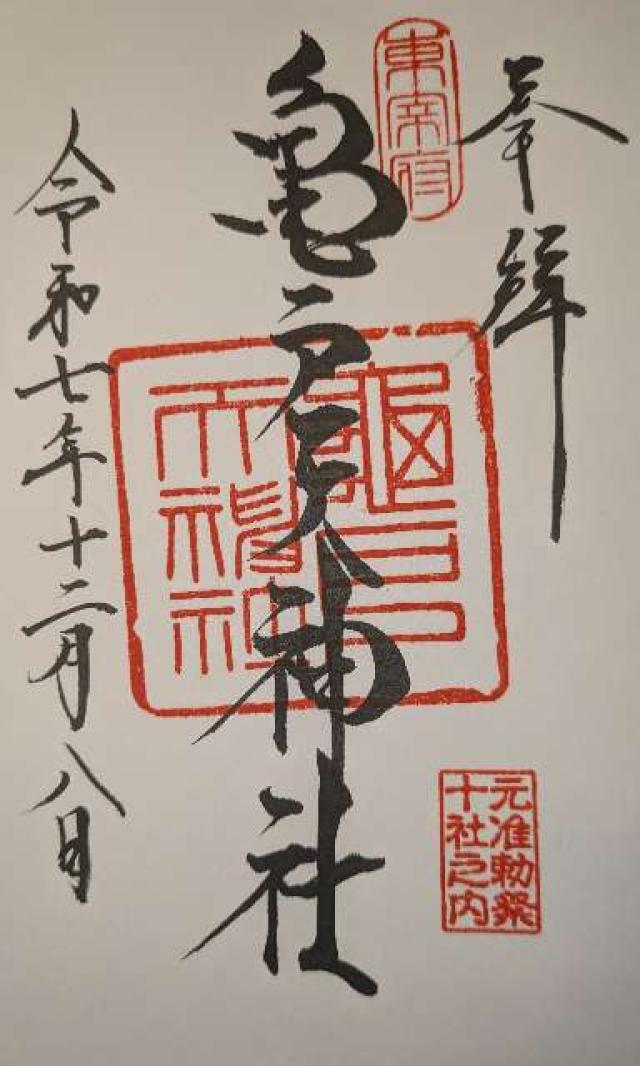 奉拝
東宰府
亀戸天神社
亀戸
天神社
元准勅祭
十社之内
令和七年十二月八日